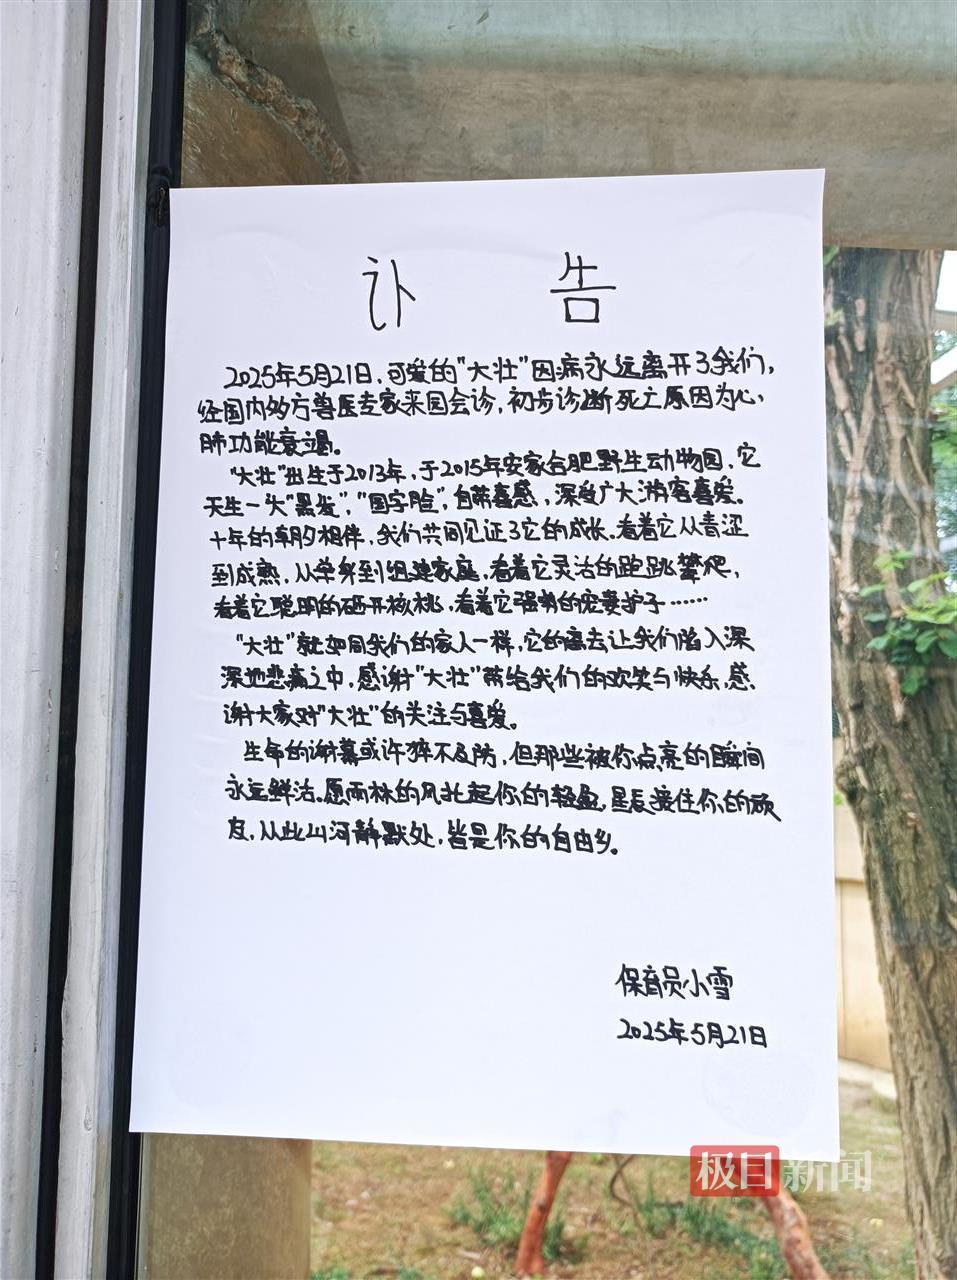 讣 告
2025年5月21日，可爱的“大壮”因病永远离开了我们，
经国内多方兽医专家来园会诊，初步诊断死亡原因为心，
肺功能衰竭。
“大壮”出生于2013年，于2015年安家合肥野生动物园，它
天生一头“黑发”，“国字脸”，自带喜感，深受广大游客喜爱。
十年的朝夕相伴，我们共同见证了它的成长。看着它从青涩
到成熟，从单身到组建家庭，看着它灵活的跑跳攀爬，
看着它聪明的砸开核桃，看着它强势的宠妻护子……
“大壮”就如同我们的家人一样，它的离去让我们陷入深
深地悲痛之中，感谢“大壮”带给我们的欢笑与快乐，感
谢大家对“大壮”的关注与喜爱。
生命的谢幕或许猝不及防，但那些被你点亮的瞬间
永远鲜活。愿雨林的风托起你的轻盈，星辰接住你的顽
皮，从此山河静默处，皆是你的自由乡。
保育员小雪
2025年5月21日
极目新闻